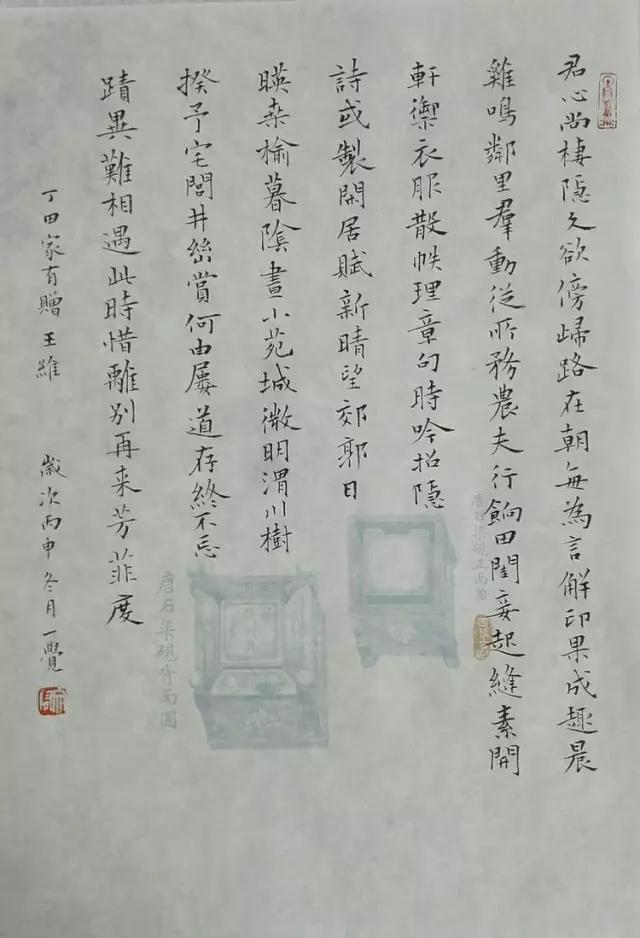 君心尚棲隱久欲傍歸路在朝每為言解印果成趣晨
雞鳴鄰里羣動從所務農夫行餉田閨妾起縫素開
軒禦衣服散帙理章句時吟招隱
詩或製閑居賦新晴望郊郭日
暎桑榆暮陰晝小苑城微明渭川樹
揆予宅閭井幽賞何由屢道存終不忘
蹟異難相遇此時惜離別再来芳菲度
丁田家有贈 王維 歲次丙申冬月一覺
唐石渠硯正面圖
唐石渠硯背面圖